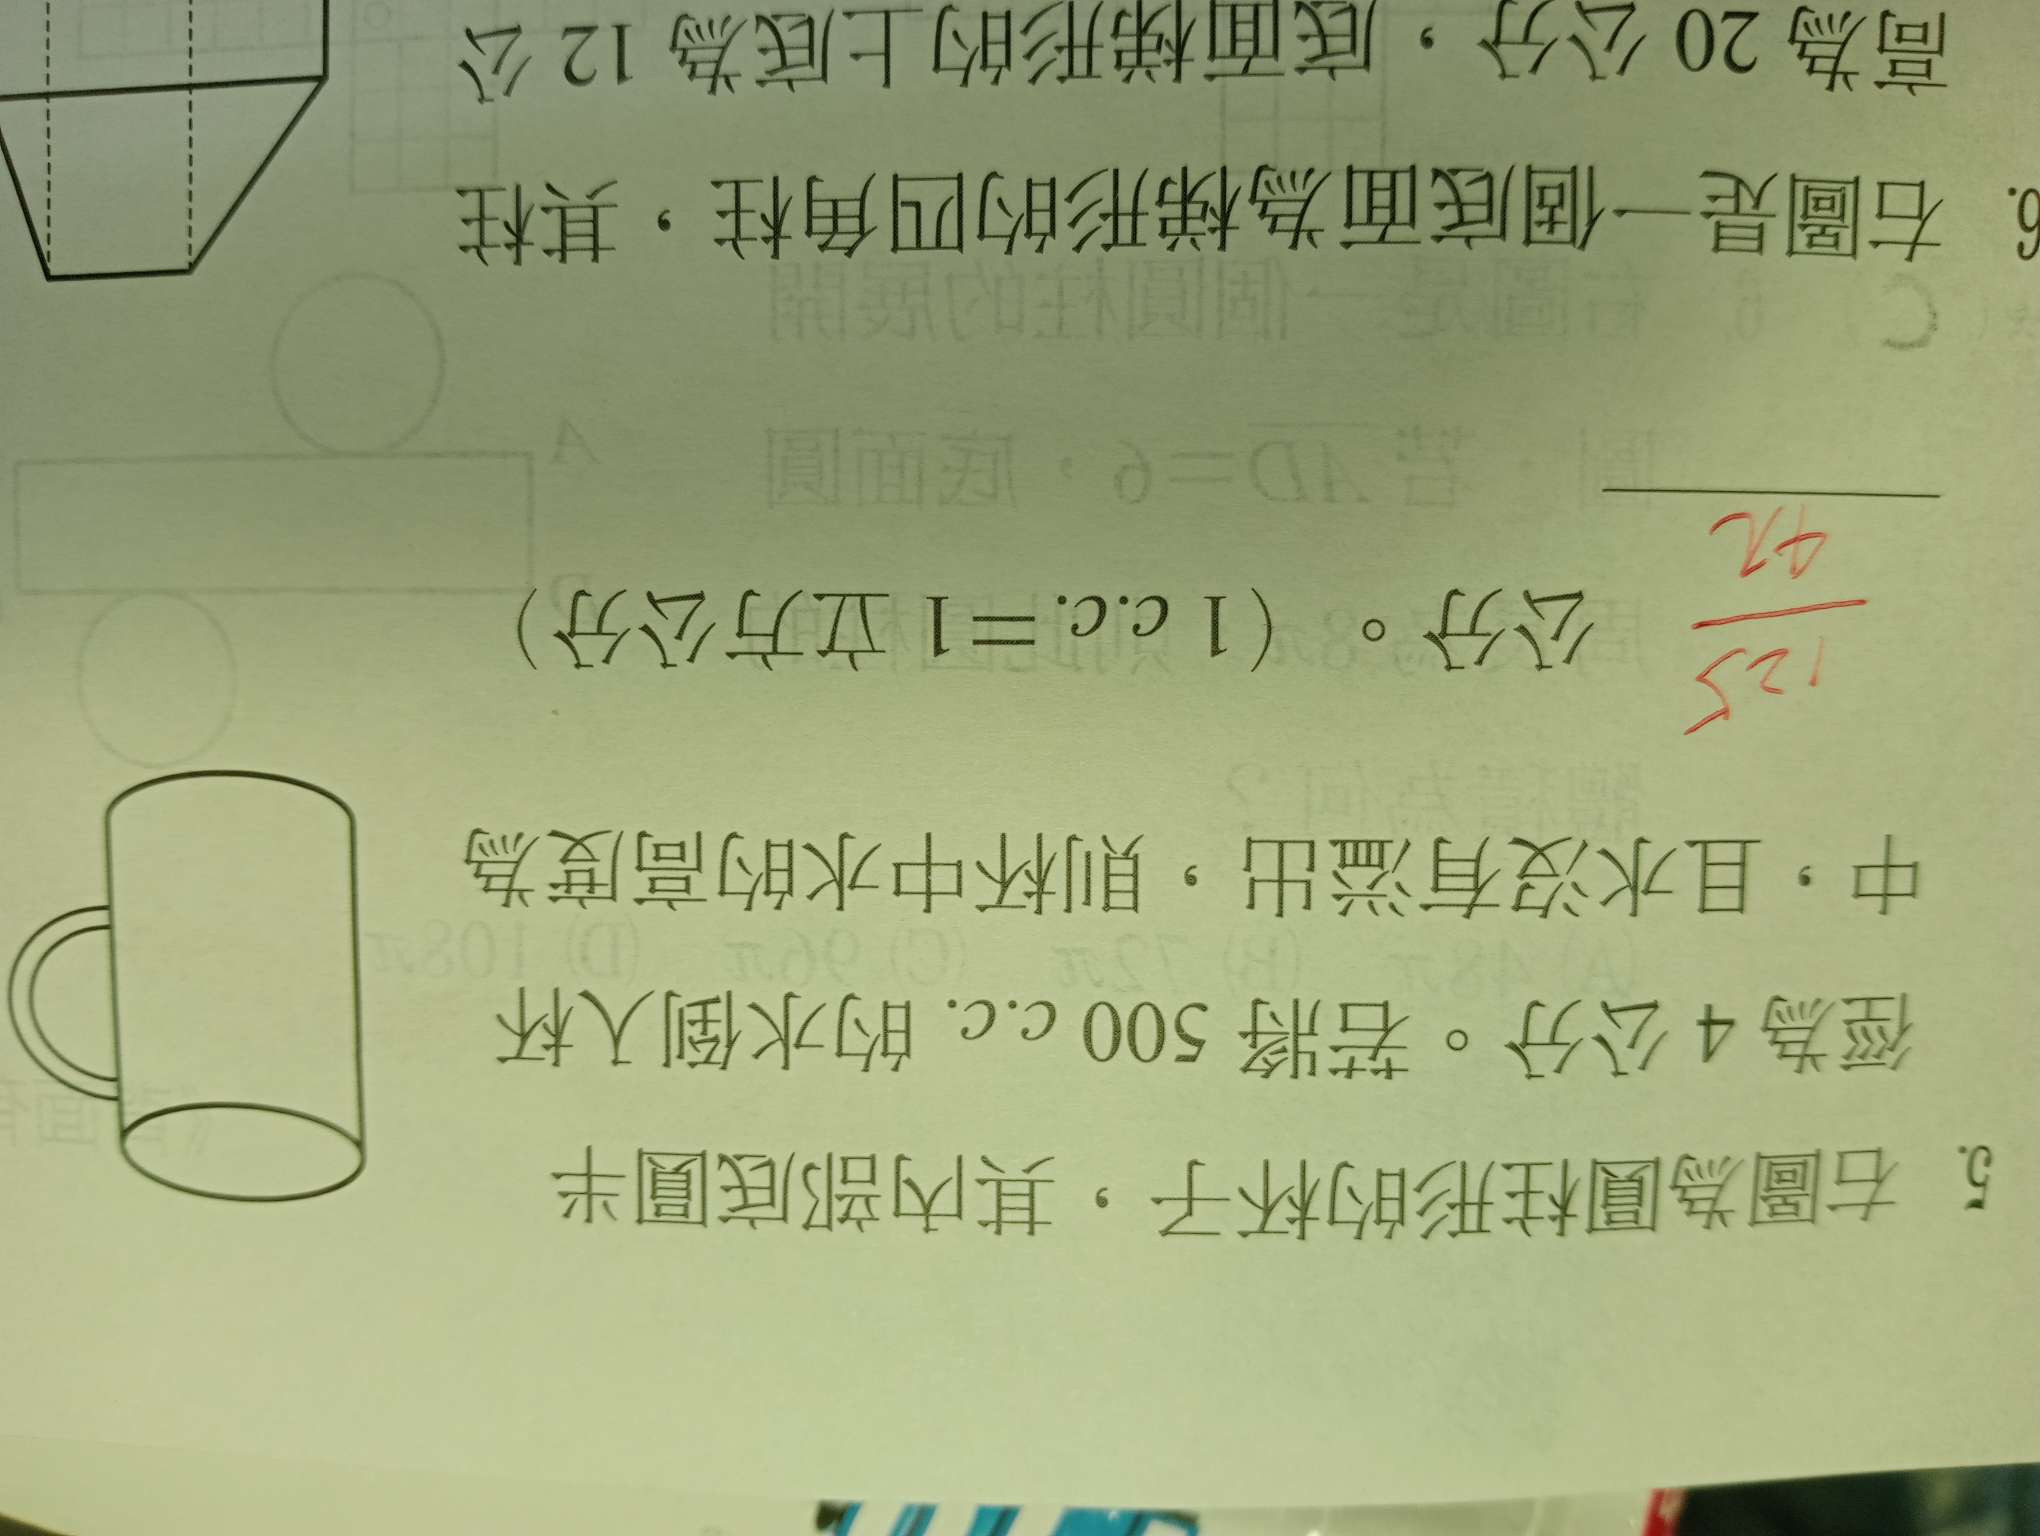 5. 右圖為圓柱形的杯子，其內部底圓半
徑為 4 公分。若將 500 c.c. 的水倒入杯
中，且水沒有溢出，則杯中水的高度為
125
4π
公分。（1 c.c. =1 立方公分）
6. 右圖是一個底面為梯形的四角柱，其柱
高為 20 公分，底面梯形的上底為 12 公